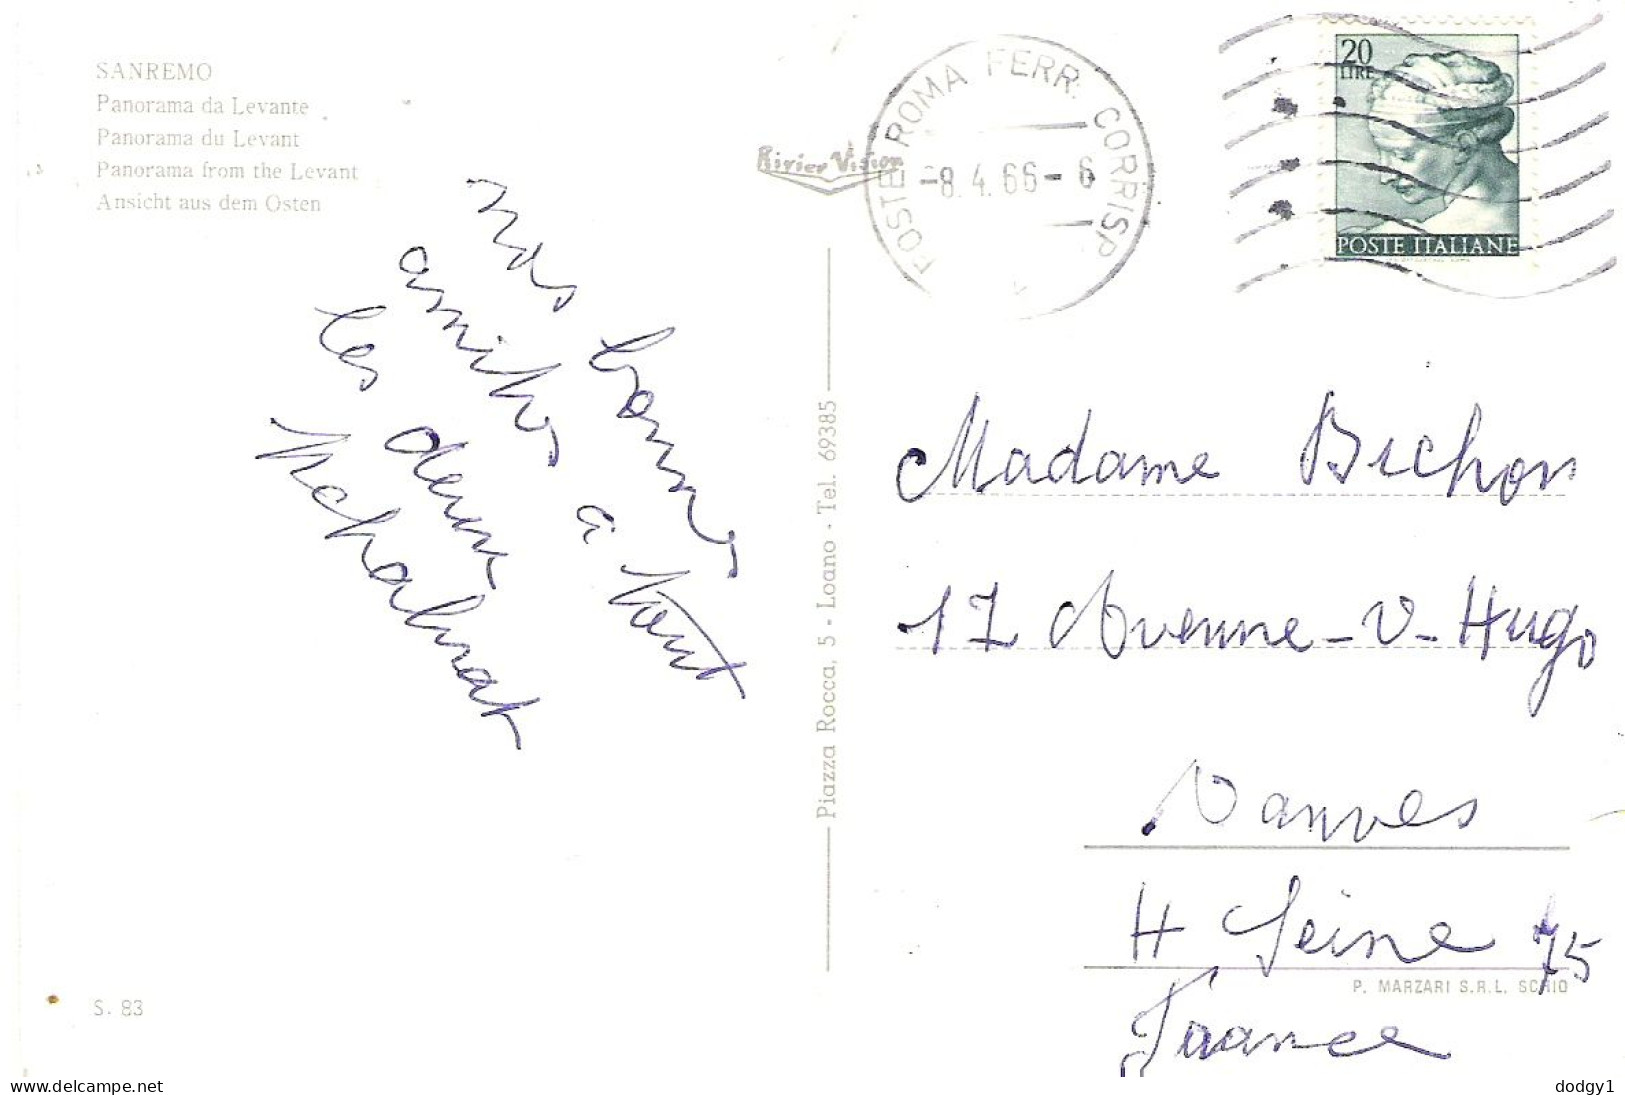 SANREMO
Panorama da Levante
Panorama du Levant
Panorama from the Levant
Ansicht aus dem Osten
nos bonnes
amitiés à tout
les deux
RivierVision
POSTE ROMA FERR. CORRISP
-8.4.66-6
20
LIRE
POSTE ITALIANE
Piazza Rocca, 5 - Loano - Tel. 69385
Madame Bichon
17 Avenue-V-Hugo
Vanves
H Seine 75
France
P. MARZARI S.R.L. SCHIO
S. 83
www.delcampe.net
dodgy1